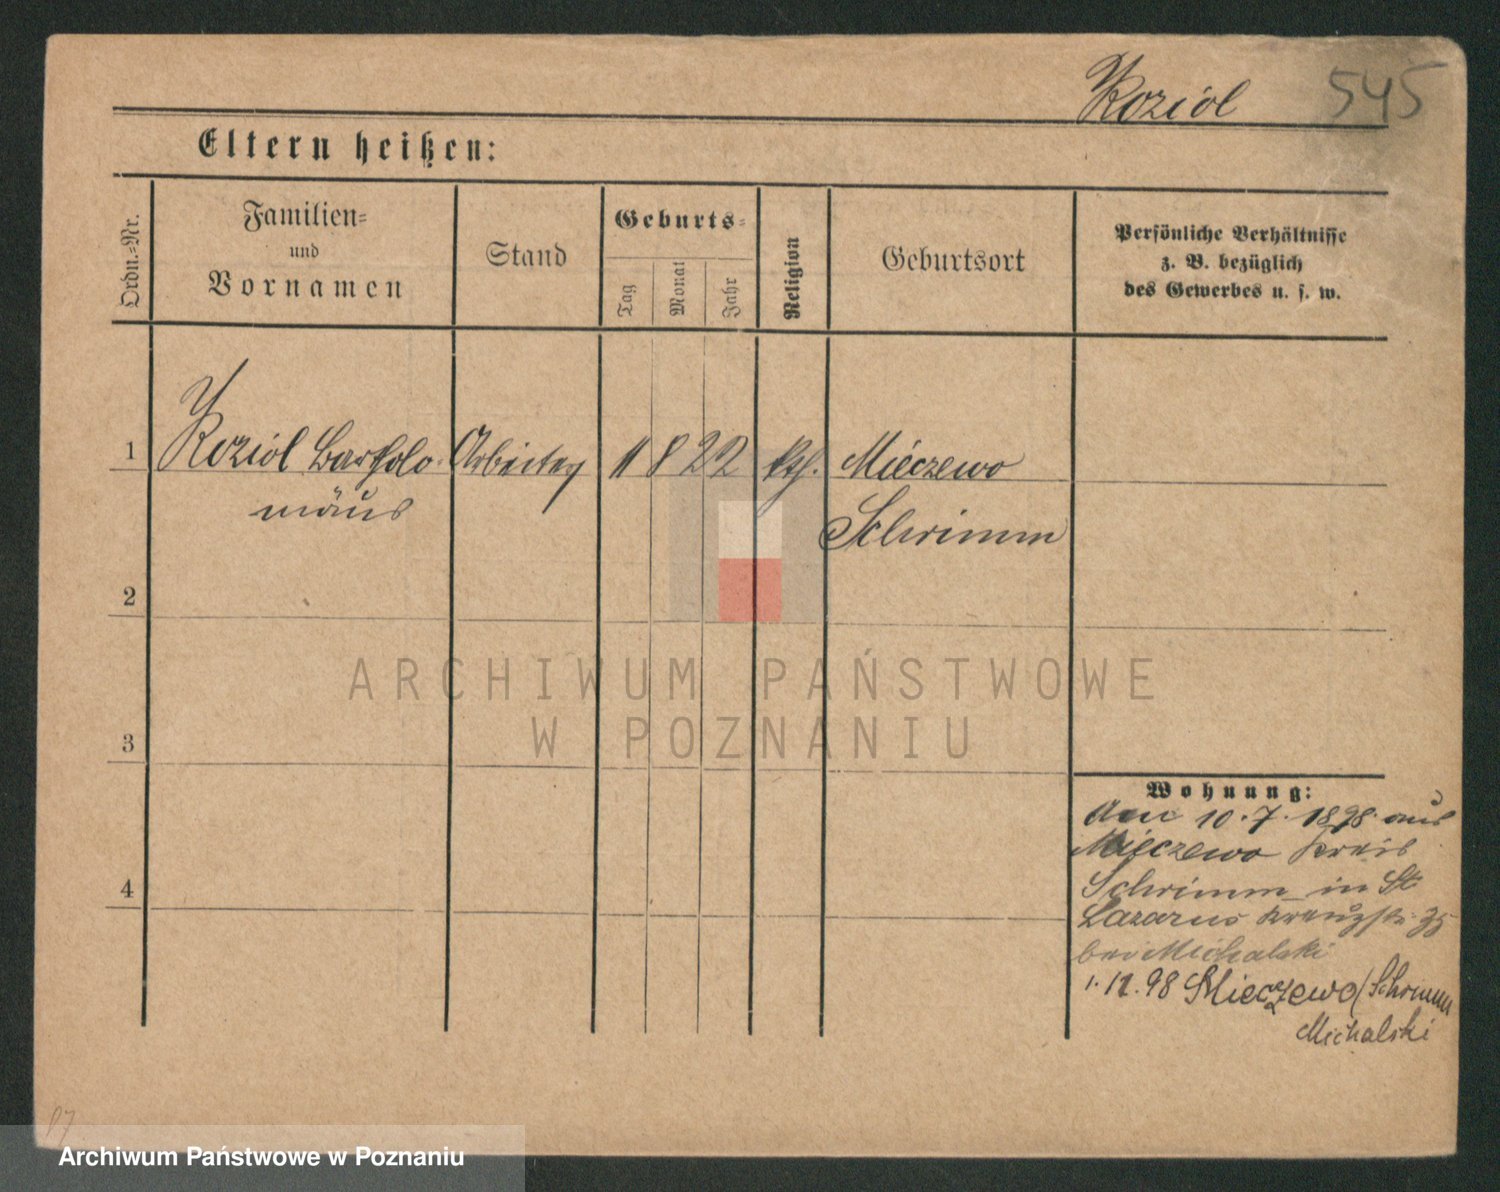 Koziol 545
Eltern heißen:
Ordn.-Nr.
Familien-
und
Vornamen
Stand
Geburts-
Tag
Monat
Jahr
Religion
Geburtsort
Persönliche Verhältnisse
z. B. bezüglich
des Gewerbes u. s. w.
1 Koziol Bartholo- Arbeiter 11 8 22 kth. Mieczewo
mäus Schrimm
2
3
4
ARCHIWUM PAŃSTWOWE
W POZNANIU
Wohnung:
Am 10.7.1898 aus
Mieczewo Kreis
Schrimm in St
Lazarus Kreuzstr. 35
bei Michalski
1.11.98 Mieczewo/Schrimm
Michalski
Archiwum Państwowe w Poznaniu